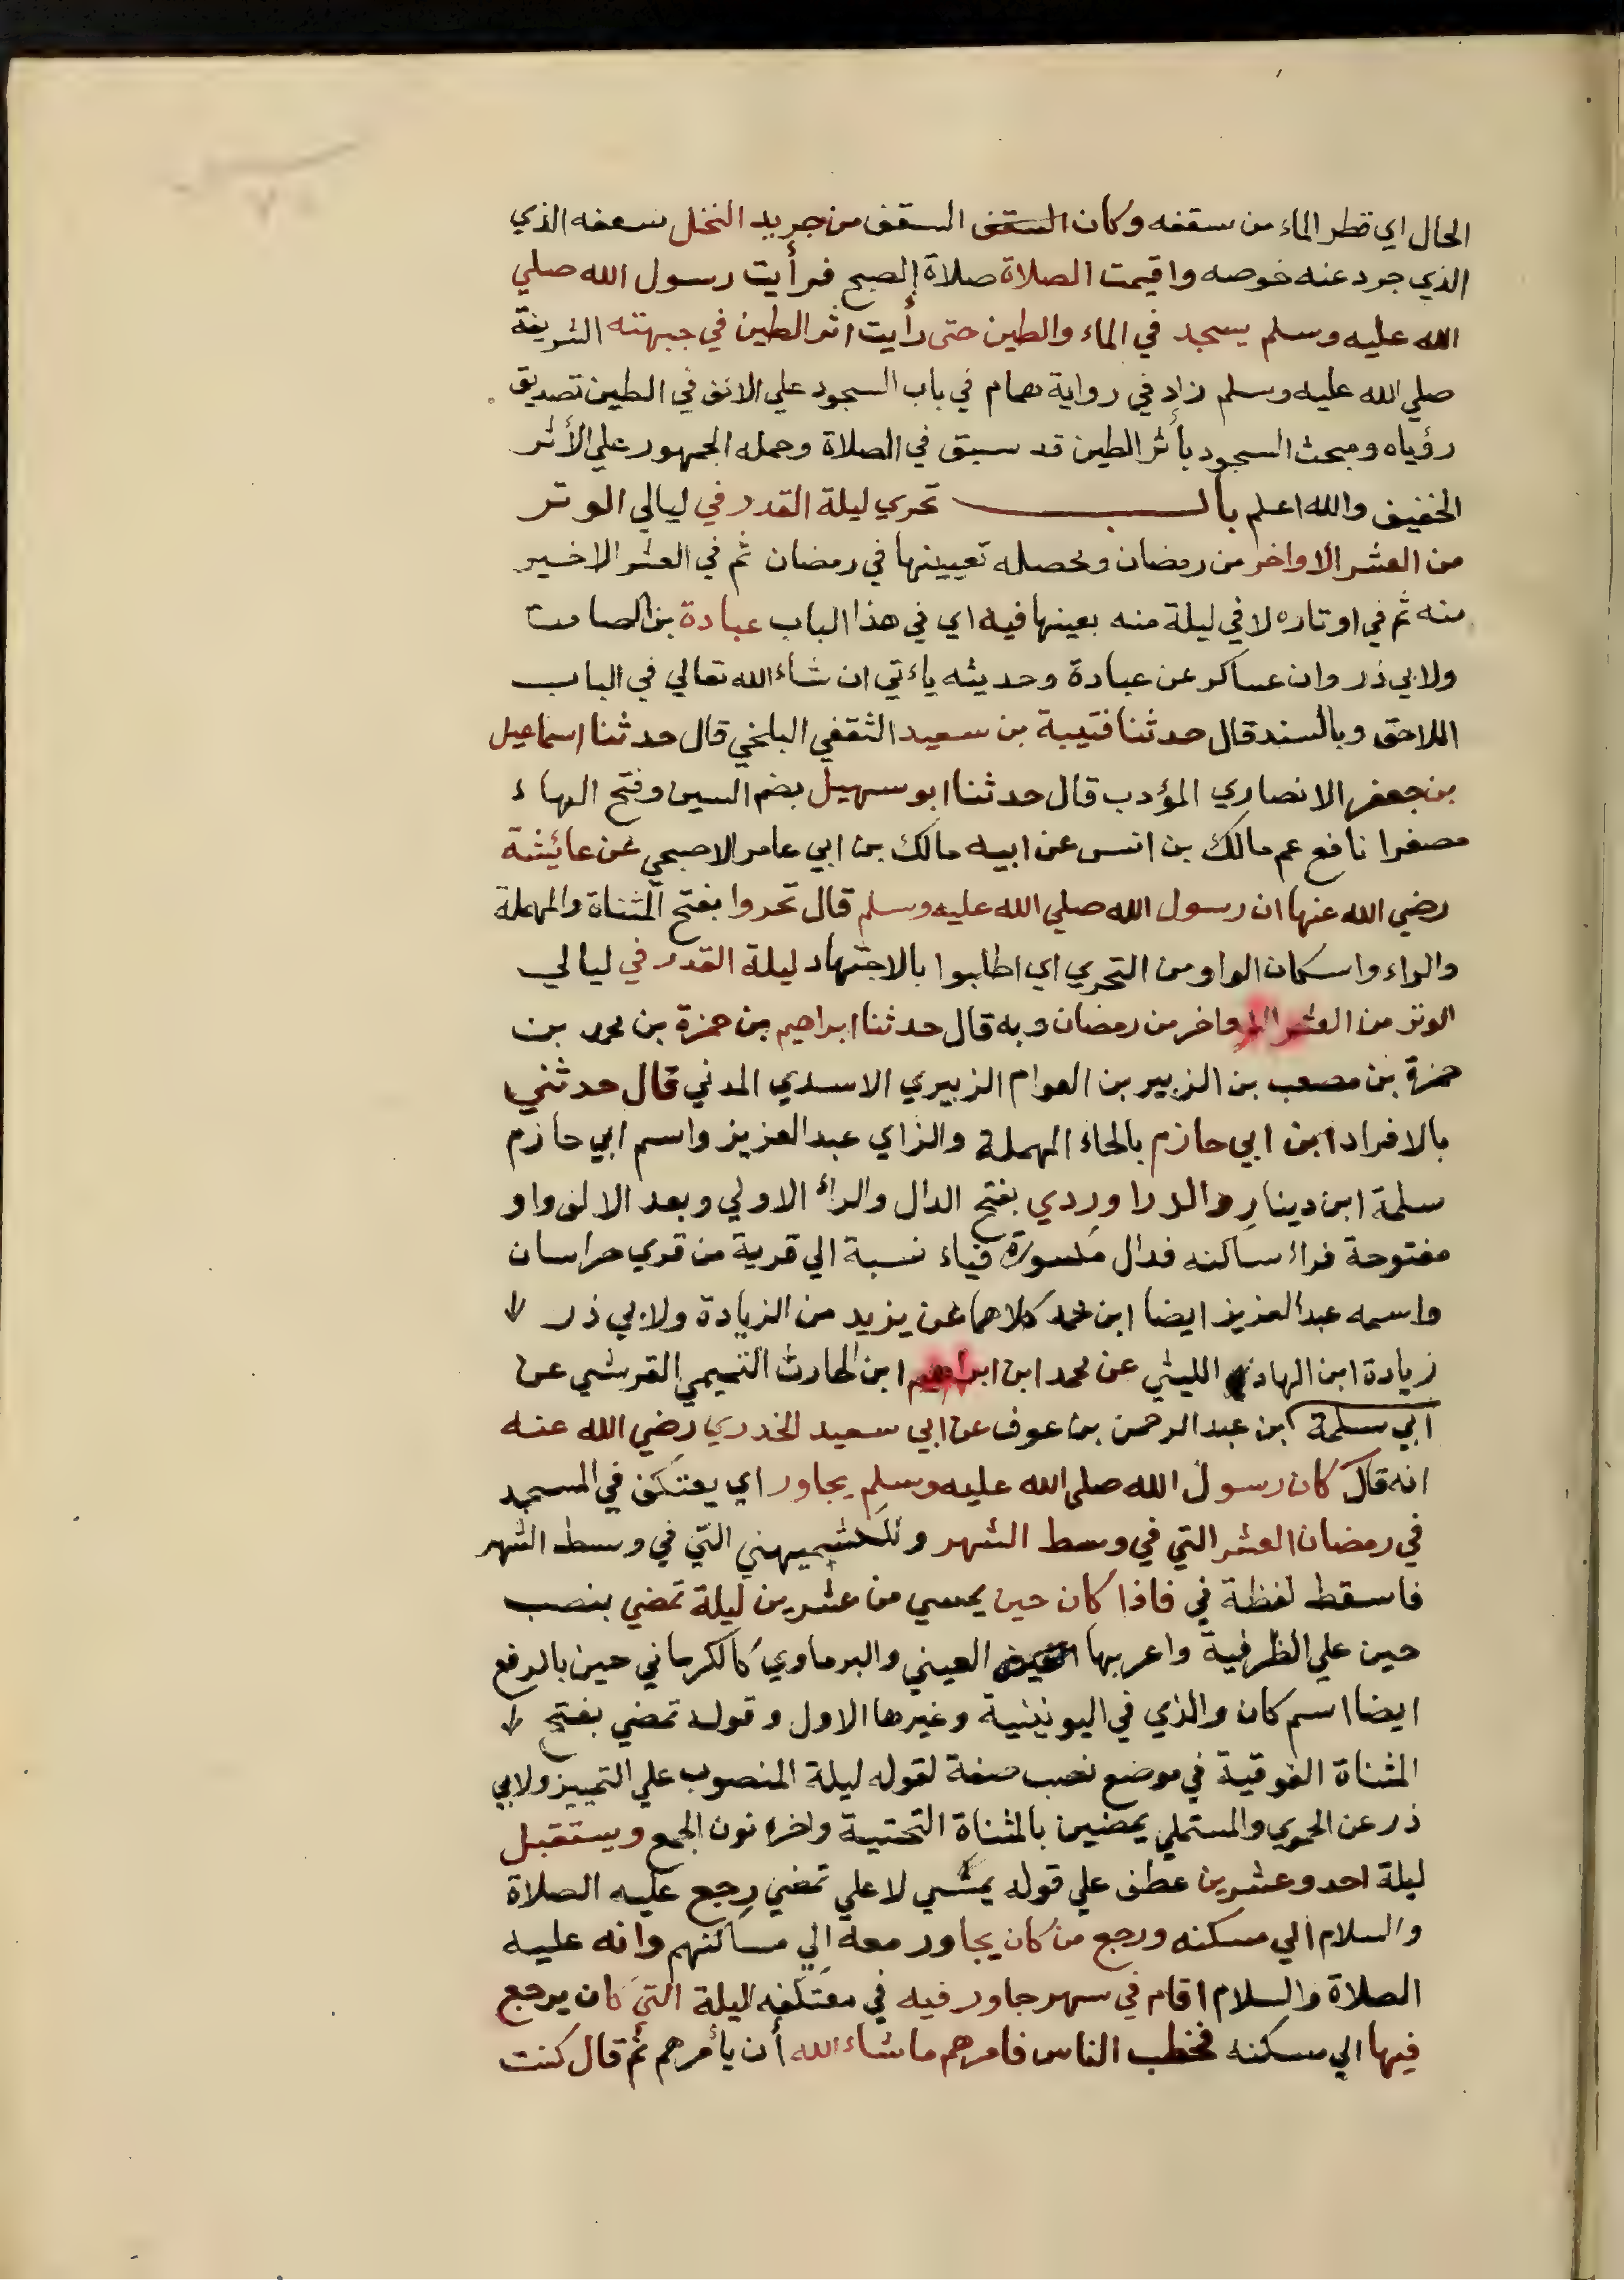 الحال اي قطر الماء من سقفه وكان السقف السقف من جريد النخل سعفه الذي
الذي جرد عنه خوصه واقيمت الصلاة صلاة الصبح فرأيت رسول الله صلي
الله عليه وسلم يسجد في الماء والطين حتى رأيت اثر الطين في جبهته الشريفة
صلي الله عليه وسلم زاد في رواية همام في باب السجود علي الانف في الطين تصديق
رؤياه ومبحث السجود بأثر الطين قد سبق في الصلاة وحمله الجمهور علي الأثر
الخفيف والله اعلم باب تحري ليلة القدر في ليالي الوتر
من العشر الاواخر من رمضان ومحصله تعيينها في رمضان ثم في العشر الاخير
منه ثم في اوتاره لا في ليلة منه بعينها فيه اي في هذا الباب عبادة بن الصامت
ولابي ذر وابن عساكر عن عبادة وحديثه يأتي ان شاء الله تعالي في الباب
اللاحق وبالسند قال حدثنا قتيبة بن سعيد الثقفي البلخي قال حدثنا اسماعيل
بن جعفر الانصاري المؤدب قال حدثنا ابو سهيل بضم السين وفتح الهاء
مصغرا نافع عم مالك بن انس عن ابيه مالك بن ابي عامر الاصبحي عن عائشة
رضي الله عنها ان رسول الله صلي الله عليه وسلم قال تحروا بفتح المثناة والمهملة
والراء واسكان الواو من التحري اي اطلبوا بالاجتهاد ليلة القدر في ليالي
الوتر من العشر الاواخر من رمضان وبه قال حدثنا ابراهيم بن حمزة بن محمد بن
حمزة بن مصعب بن الزبير بن العوام الزبيري الاسدي المدني قال حدثني
بالافراد ابن ابي حازم بالحاء المهملة والزاي عبد العزيز واسم ابي حازم
سلمة ابن دينار والدراوردي بفتح الدال والراء الاولي وبعد الالف واو
مفتوحة فراء ساكنه فدال مكسورة فياء نسبة الي قرية من قري خراسان
واسمه عبد العزيز ايضا ابن محمد كلاهما عن يزيد من الزيادة ولابي ذر
زيادة ابن الهاد الليثي عن محمد ابن ابراهيم ابن الحارث التيمي القرشي عن
ابي سلمة ابن عبد الرحمن بن عوف عن ابي سعيد الخدري رضي الله عنه
انه قال كان رسول الله صلي الله عليه وسلم يجاور اي يعتكف في المسجد
في رمضان العشر التي في وسط الشهر وللكشميهني التي في وسط الشهر
فاسقط لفظة في فاذا كان حين يمسي من عشرين ليلة تمضي بنصب
حين علي الظرفية واعربها العيني والبرماوي كالكرماني حين بالرفع
ايضا اسم كان والذي في اليونينية وغيرها الاول وقوله تمضي بفتح
المثناة الفوقية في موضع نصب صفة لقوله ليلة المنصوب علي التمييز ولابي
ذر عن الحموي والمستملي يمضين بالمثناة التحتية واخره نون الجمع ويستقبل
ليلة احد وعشرين عطف علي قوله يمسي لا علي تمضي رجع عليه الصلاة
والسلام الي مسكنه ورجع من كان يجاور معه الي مساكنهم وانه عليه
الصلاة والسلام اقام في شهر جاور فيه في معتكفه ليلة التي كان يرجع
فيها الي مسكنه فخطب الناس فامرهم ما شاء الله أن يأمرهم ثم قال كنت